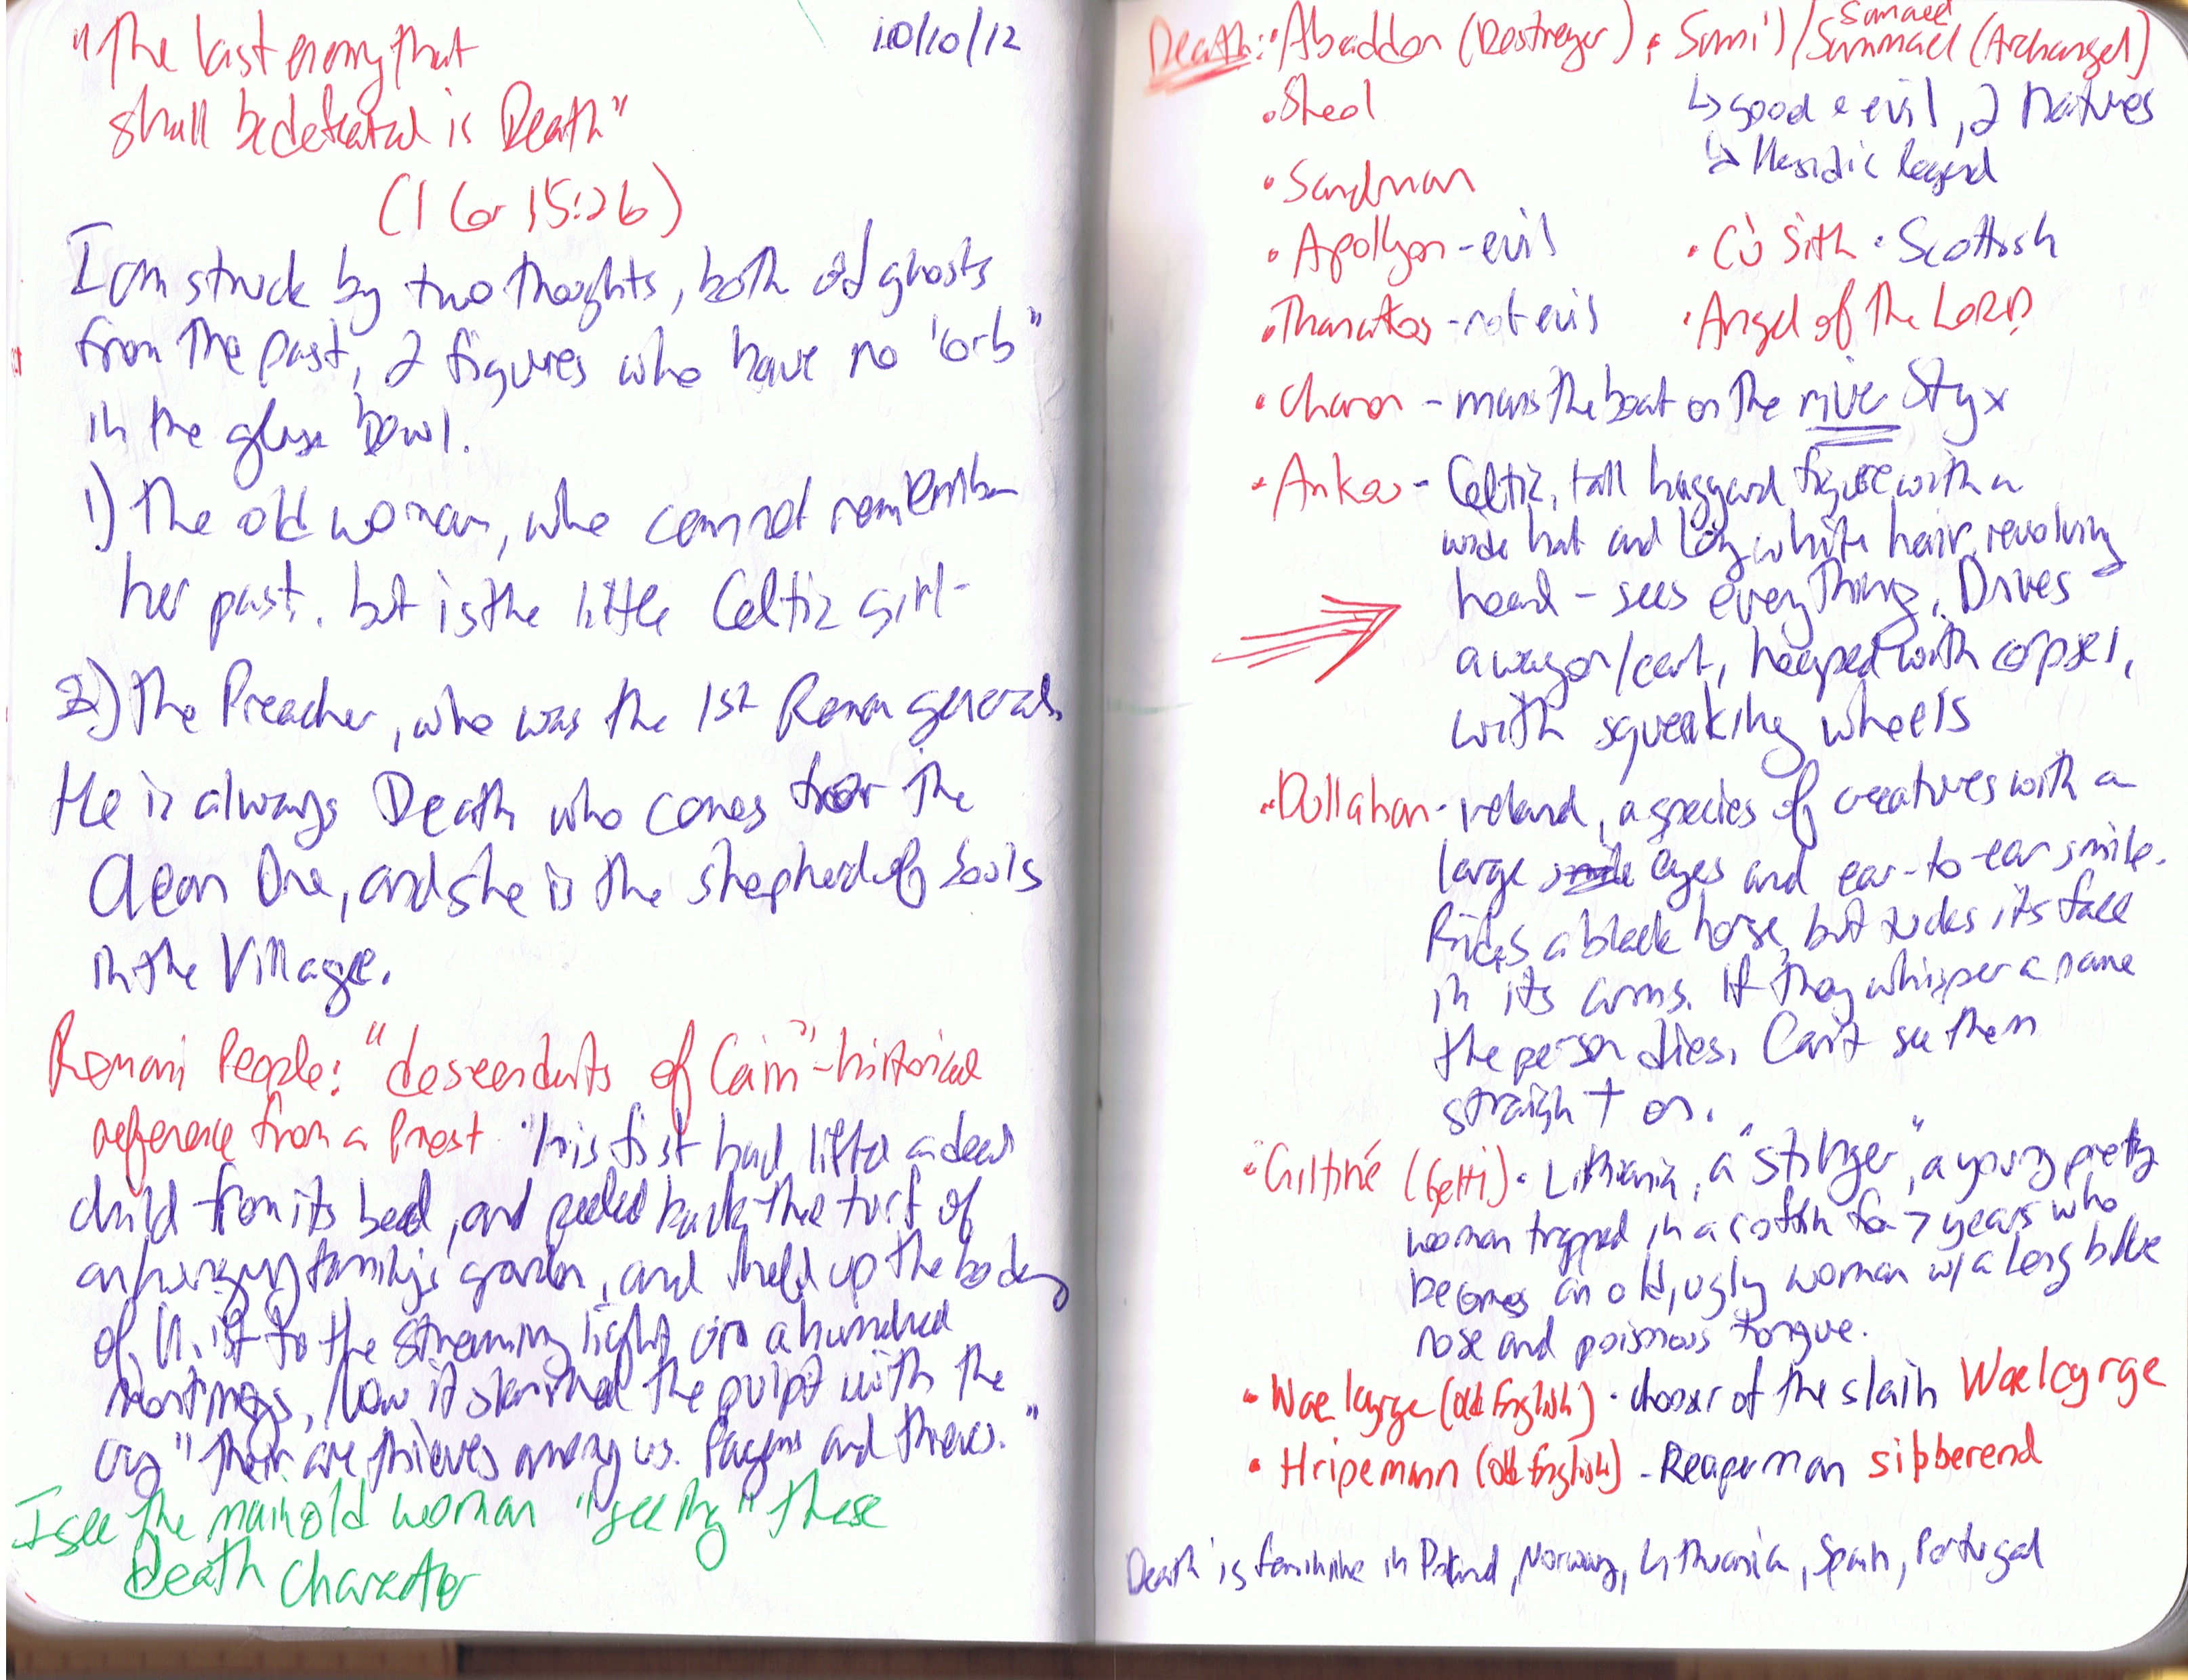 "The last enemy that
shall be defeated is Death"
(1 Cor 15:26)
10/10/12
I am struck by two thoughts, both old ghosts
from the past, 2 figures who have no "orb"
in the glass bowl.
1) The old woman, who cannot remember
her past. but is the little Celtic girl-
2) The Preacher, who was the 1st Roman general.
He is always Death who comes for the
Clean One, and she is the shepherd of souls
in the Village.
Romani People: "descendants of Cain"-historical
reference from a Priest "his fist had lifted a dead
child from its bed, and peeled back the turf of
family's garden, and held up the body
of to the streaming light on a hundred
mornings, Now it slammed the pulpit with the
cry "There are thieves among us. Pagans and thieves."
I see the main old woman "seeing" these
Death Character
Death: • Abaddon (Destroyer) • Sami'l/Sammael (Archangel)
Samael
• Sheol
↳ good & evil, 2 natures
↳ Hasidic legend
• Sandman
• Apollyon - evil
• Cù Sith • Scottish
• Thanatos - not evil
• Angel of the LORD
• Charon - mans the boat on the river Styx
• Ankou - Celtic, tall haggard figure with a
wide hat and long white hair, revolving
head - sees everything. Drives
a wagon/cart, heaped with corpses,
with squeaking wheels
• Dullahan - Ireland, a species of creatures with a
large eyes and ear-to-ear smile.
Rides a black horse, but its face
in its arms. If they whisper a name
the person dies. Can't see them
straight on.
• Giltiné (Getti) • Lithuania, a "stinger", a young pretty
woman trapped in a coffin for 7 years who
becomes an old, ugly woman w/a long blue
nose and poisonous tongue.
• Waelcyrge (Old English) • chooser of the slain Waelcyrge
• Hripemann (Old English) - Reaperman sibberend
Death is feminine in Poland, Norway, Lithuania, Spain, Portugal